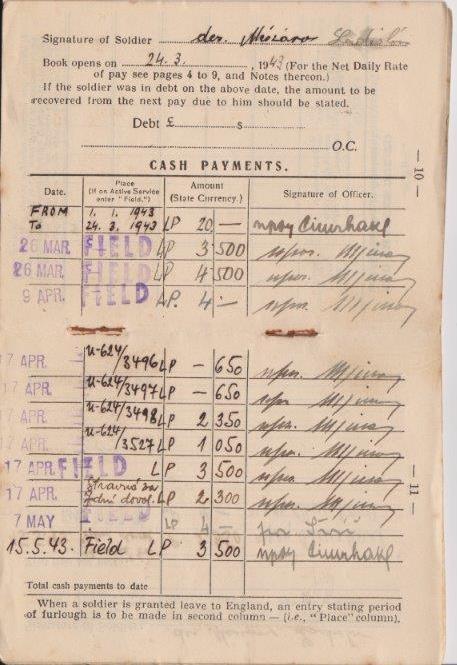 Signature of Soldier des.
Book opens on 24.3. , 1943 (For the Net Daily Rate
of pay see pages 4 to 9, and Notes thereon.)
If the soldier was in debt on the above date, the amount to be
recovered from the next pay due to him should be stated.
Debt £ s
O.C.
— 10 —
CASH PAYMENTS.
Date. Place (If on Active Service enter "Field.") Amount (State Currency.) Signature of Officer.
FROM 1. 1. 1943
To 24. 3. 1943 LP 20 —
26 MAR. FIELD LP 3 500
26 MAR. FIELD LP 4 500
9 APR. FIELD LP. 4 —
17 APR. U-624/3496 LP — 650
17 APR. U-624/3497 LP — 650
17 APR. U-624/3498 LP 2 350
U-624/3527 LP 1 050
17 APR. FIELD LP 3 500
17 APR. Stravné za dovol. LP 2 300
7 MAY FIELD LP 4 —
15.5.43. Field LP 3 500
— 11 —
Total cash payments to date
When a soldier is granted leave to England, an entry stating period
of furlough is to be made in second column — (i.e., "Place" column).